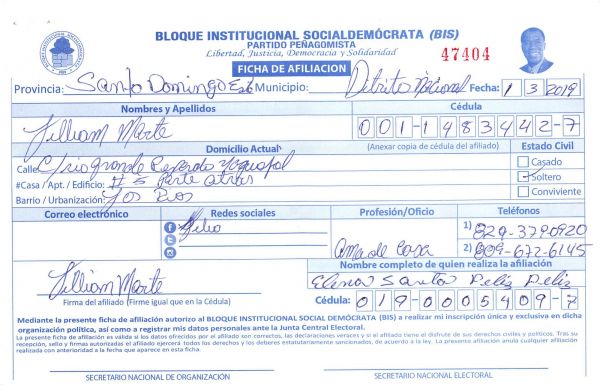 BLOQUE INSTITUCIONAL SOCIALDEMÓCRATA (BIS)
PARTIDO PEÑAGOMISTA
Libertad, Justicia, Democracia y Solidaridad
47404
FICHA DE AFILIACION
Provincia: Santo Domingo Est Municipio: Ditrito Nacional Fecha: 1 3 2019
Nombres y Apellidos Cédula
Yilliam Marte 001-1483442-7
Domicilio Actual (Anexar copia de cédula del afiliado) Estado Civil
Calle: C/rio grande Casado
#Casa / Apt. / Edificio: # 5 Parte atras Soltero
Barrio / Urbanización: Los Rios Conviviente
Correo electrónico Redes sociales Profesión/Oficio Teléfonos
1) 829-379-0920
Ama de Casa 2) 809-672-6145
Nombre completo de quien realiza la afiliación
Yilliam Marte Elena Santo Peliz Peliz
Firma del afiliado (Firme igual que en la Cédula) Cédula: 019-0005409-7
Mediante la presente ficha de afiliación autorizo al BLOQUE INSTITUCIONAL SOCIAL DEMÓCRATA (BIS) a realizar mi inscripción única y exclusiva en dicha
organización política, así como a registrar mis datos personales ante la Junta Central Electoral.
La presente ficha de afiliación es válida si los datos ofrecidos por el afiliado son correctos, las declaraciones veraces y si el afiliado tiene el disfrute de sus derechos civiles y políticos. Tras su
recepción, sello y firmas autorizadas el afiliado ejercerá todos los derechos y los deberes estatutariamente sancionados, de acuerdo a nuestra norma y a la ley. La presente afiliación anula cualquier afiliación
realizada con anterioridad a la fecha que aparece en esta ficha.
SECRETARIO NACIONAL DE ORGANIZACIÓN SECRETARIO NACIONAL ELECTORAL